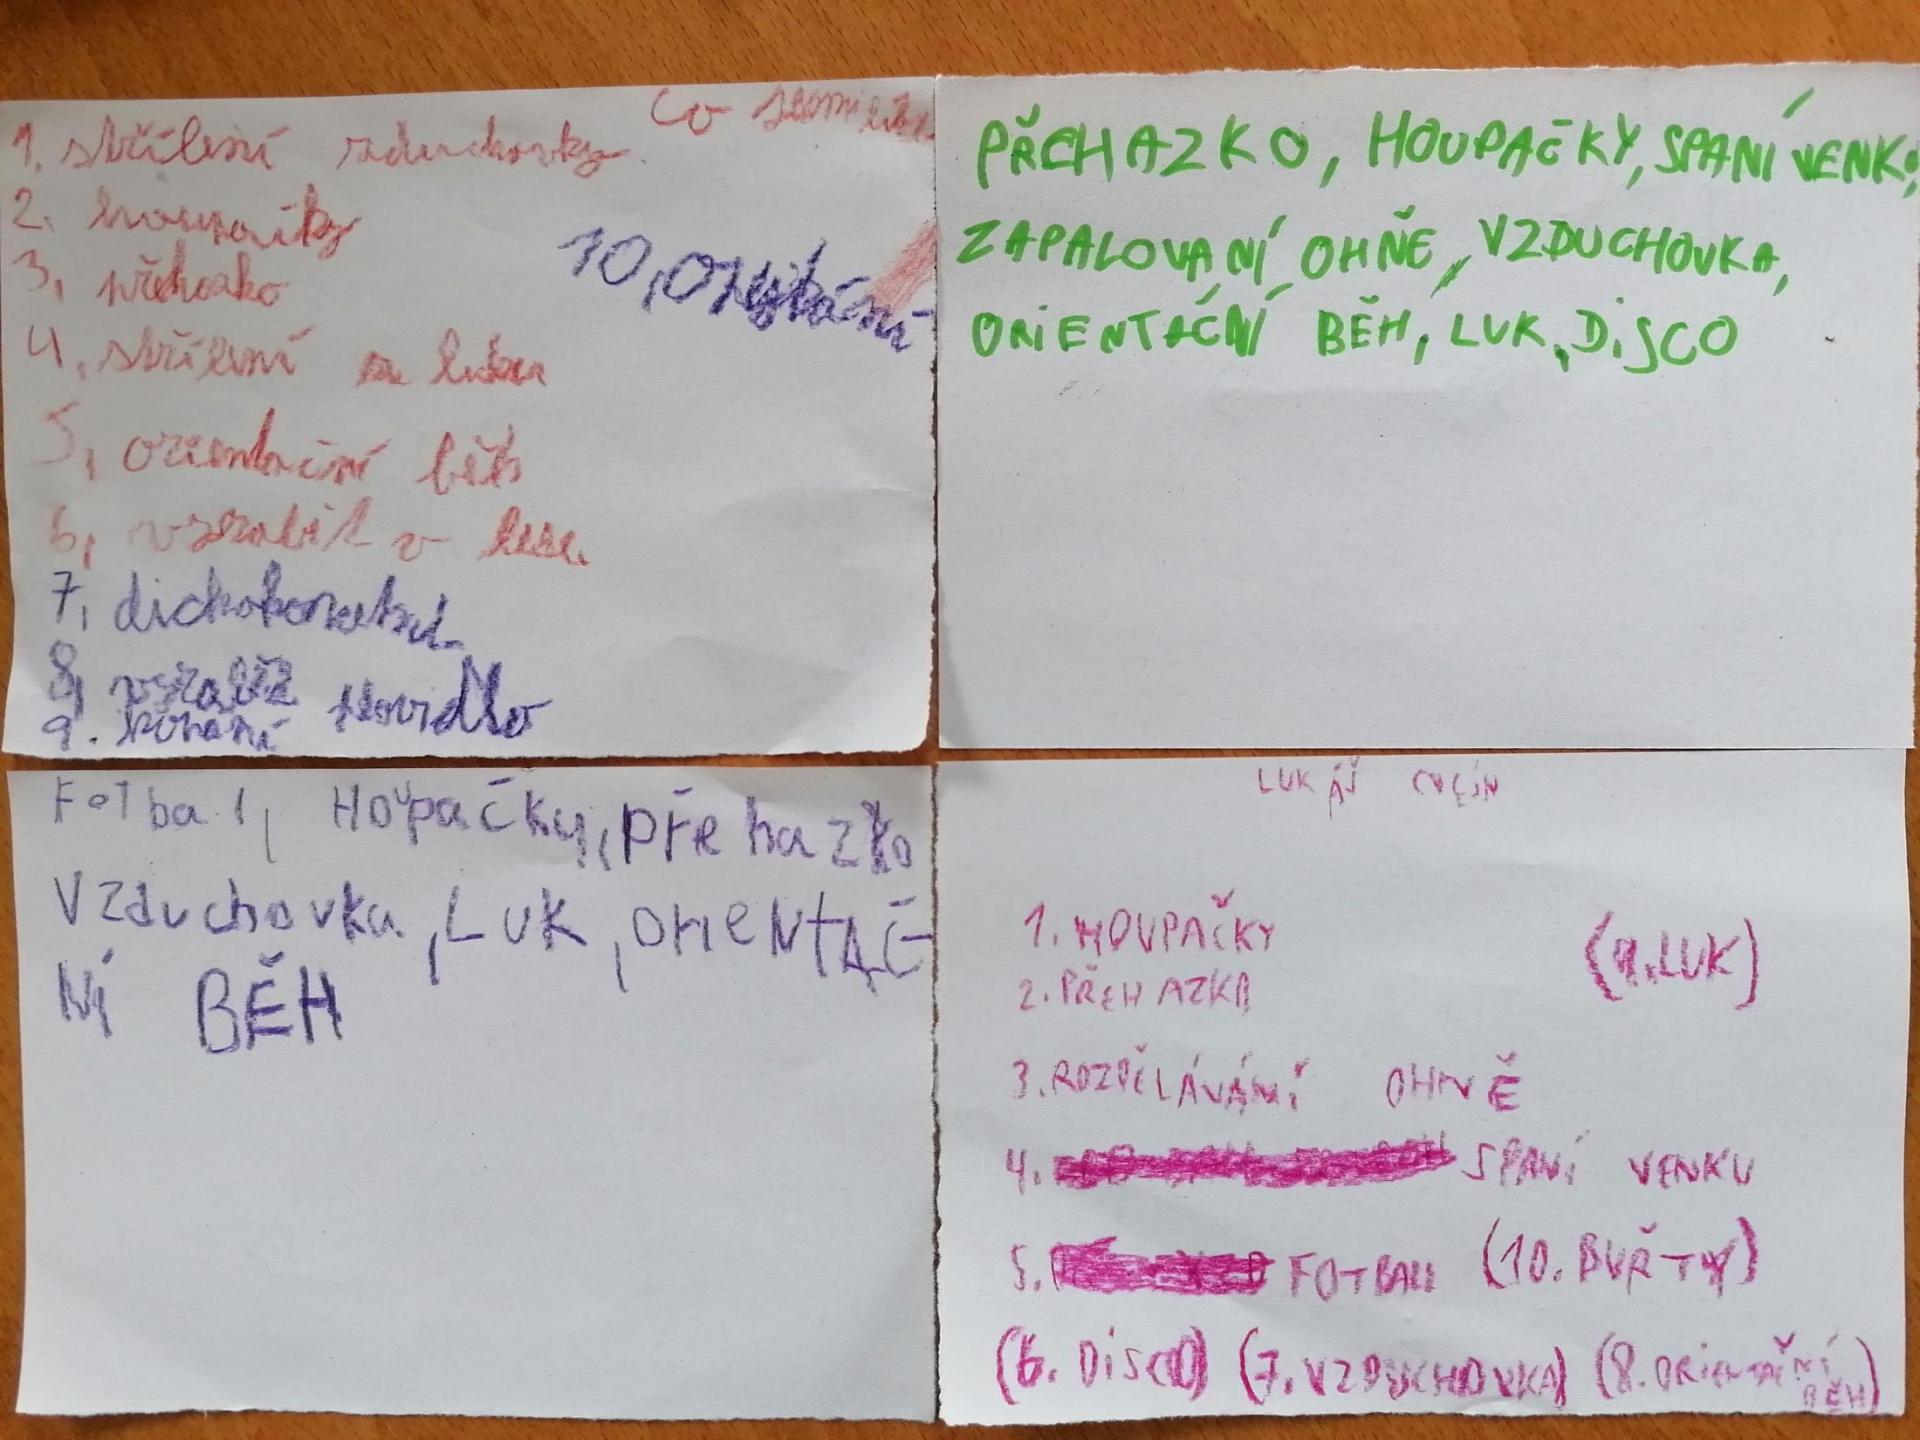 Co se mi líbí
1. střílení vzduchovky
2. houpačky
3, přehazko
4, střílení z luku
5, orientační běh
6, vyrábět v lese
7,
8, vyrábět
9.
10,
PŘCHAZKO, HOUPAČKY, SPANÍ VENKU,
ZAPALOVANÍ OHŇE, VZDUCHOVKA,
ORIENTAČNÍ BĚH, LUK, DISCO
Fotbal, Houpačky, přehazko
Vzduchovka, Luk, orieNtAČ-
Ní BĚH
LUKÁŠ
1. HOUPAČKY
(9. LUK)
2. PŘEHAZKA
3. ROZDĚLÁVÁNÍ OHNĚ
4. SPANÍ VENKU
5. FOTBALL (10. BUŘTY)
(6. DISCO) (7. VZDUCHOVKA) (8. ORIENTAČNÍ
BĚH)